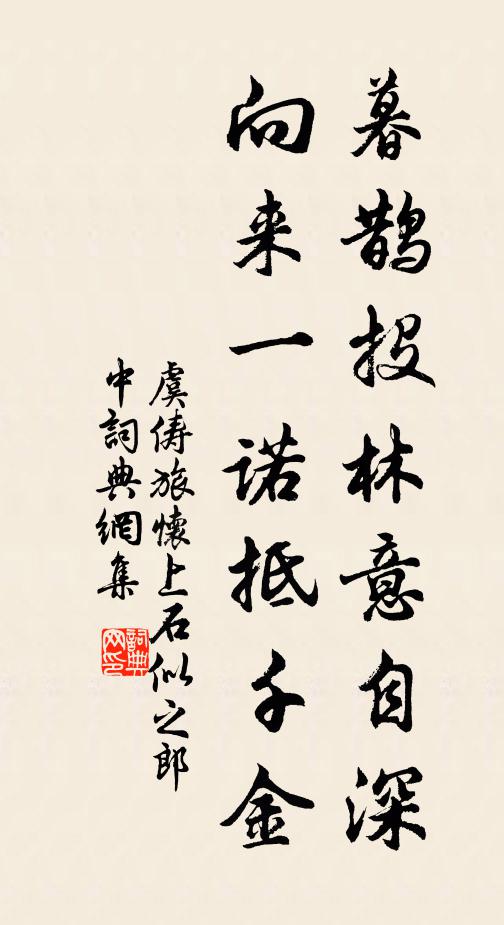 暮鹊投林意自深
向来一诺抵千金
虞儔旅懷上石似之郎
中詞典網集
詞典网印